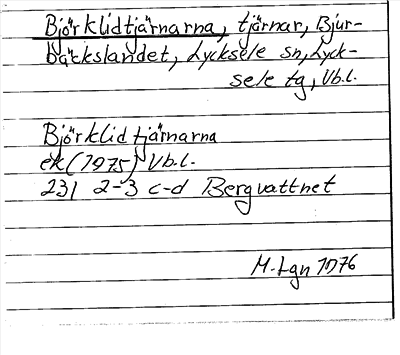 Björklidtjärnarna, tjärnar, Bjur-
bäckslandet, Lycksele sn, Lyck-
sele tg, Vb.l.
Björklidtjärnarna
ek (1975) Vb.l.
231 2-3 c-d Bergvattnet
M. Lgn 1976